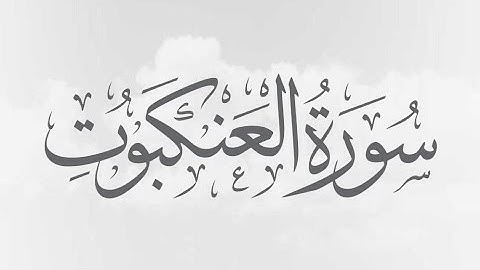 سُورَةُ العَنكَبُوتِ